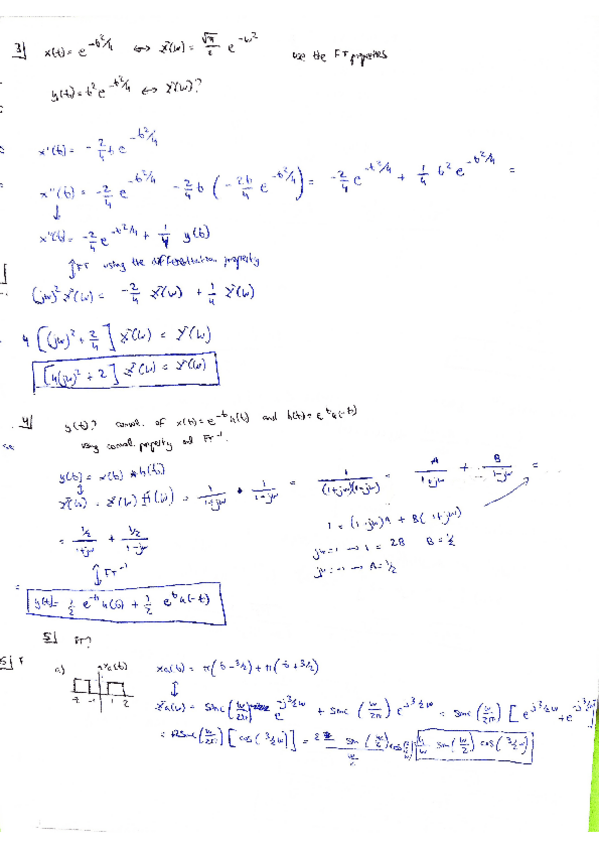 3] x(t) = e^{-t²/4} ↔ X(w) = √π/2 e^{-w²} use the FT properties
y(t) = t² e^{-t²/4} ↔ Y(w)?
x'(t) = -2/4 t e^{-t²/4}
x''(t) = -2/4 e^{-t²/4} -2/4 t (-2t/4 e^{-t²/4}) = -2/4 e^{-t²/4} + 1/4 t² e^{-t²/4} =
x''(t) = -2/4 e^{-t²/4} + 1/4 y(t)
↕ FT using the differentiation property
(jw)² X(w) = -2/4 X(w) + 1/4 Y(w)
4 [(jw)² + 2/4] X(w) = Y(w)
[4(jw)² + 2] X(w) = Y(w)
4] y(t)? convol. of x(t) = e^{-t} u(t) and h(t) = e^{t} u(-t)
using convol. property and FT⁻¹.
y(t) = x(t) * h(t)
Y(w) = X(w) H(w) = 1/(1+jw) · 1/(1-jw) = 1/((1+jw)(1-jw)) = A/(1+jw) + B/(1-jw) =
1 = (1-jw)A + B(1+jw)
jw=1 → 1 = 2B B = 1/2
jw=-1 → A = 1/2
= (1/2)/(1+jw) + (1/2)/(1-jw)
↕ FT⁻¹
y(t) = 1/2 e^{-t} u(t) + 1/2 e^{t} u(-t)
5] FT?
a) xa(t) xa(t) = π(t-3/2) + π(t+3/2)
-2 -1 1 2
Xa(w) = sinc(w/2π) e^{-j3/2w} + sinc(w/2π) e^{j3/2w} = sinc(w/2π) [e^{j3/2w} + e^{-j3/2w}]
= 2 sinc(w/2π) [cos(3/2w)] = 2 sin(w/2)/(w/2) cos(3/2w) = 4/w sin(w/2) cos(3/2w)